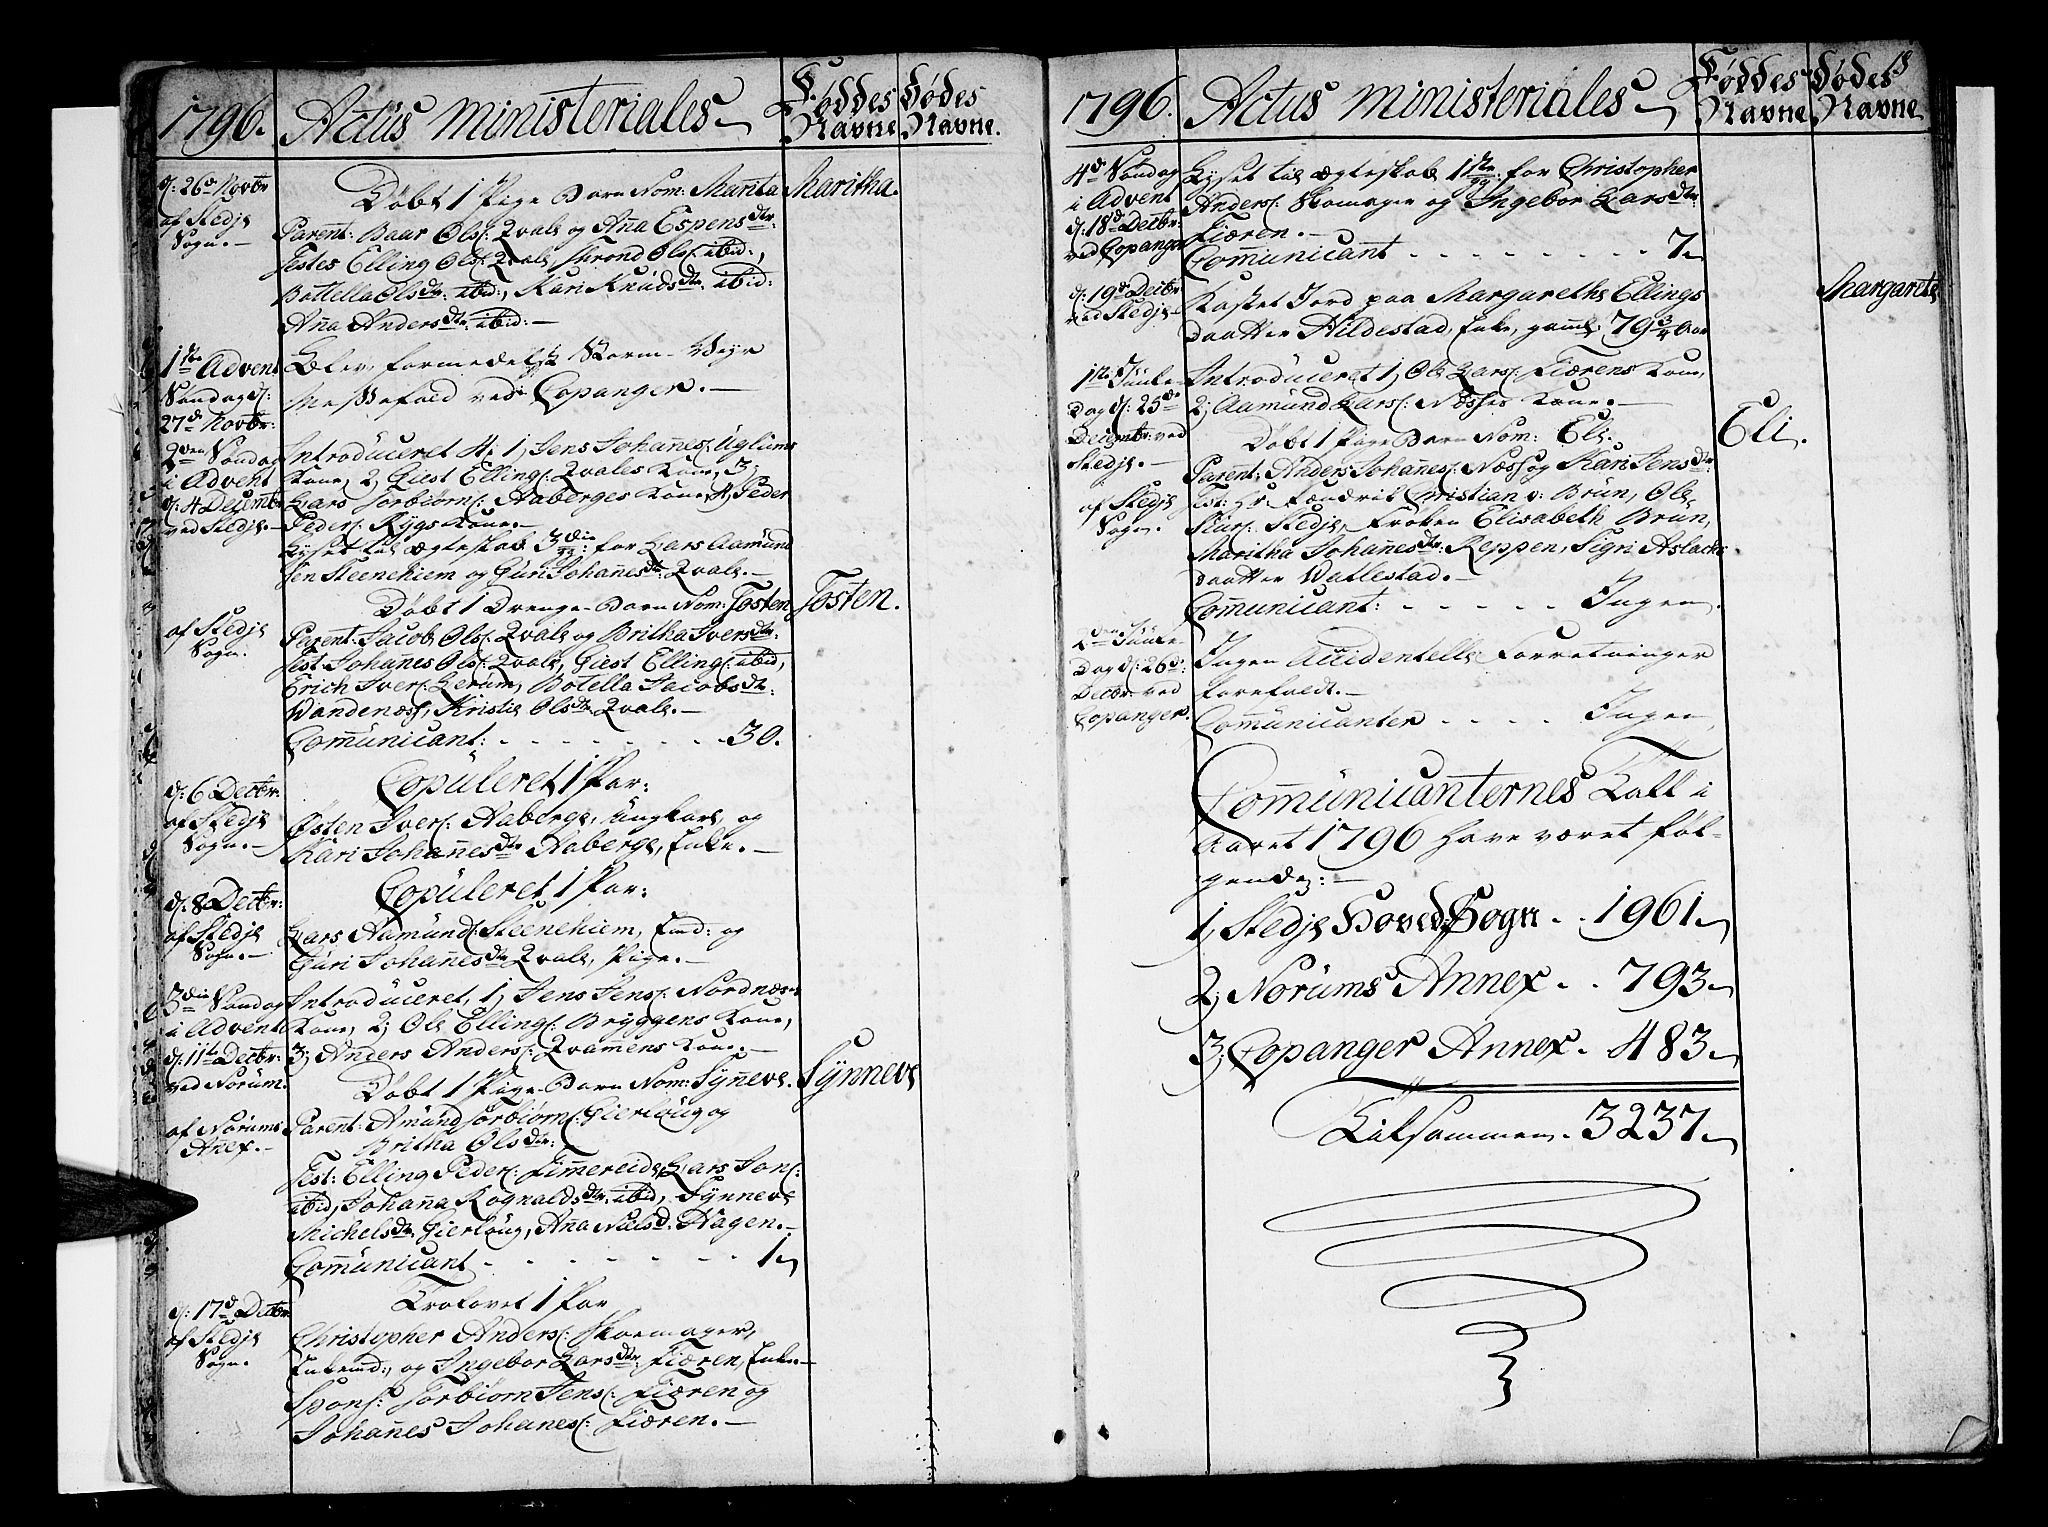 1796. Actus ministeriales Føddes Navne Dødes Navne.
d: 26de Novbr af Stedje Sogn.
Døbt 1 Pige Barn Nom: Maritha Maritha.
Parent: Baar Ols: Qvale og Aña Espensdtr:
Testes Elling Ols: Qvale, Thrond Ols: ibid:,
Bottella Olsdtr: ibid:, Kari Knudsdtr: ibid:
Aña Andersdtr: ibid:
1ste Advent Søndag d: 27de Novbr:
Blev, formedelst Storm-Vejr
Messefald ved Copanger.
2den Søndag i Advent d: 4 Decembr ved Stedje.
Introduceret 4, 1, Jens Johañes: Uglums
Kone, 2, Giest Elling: Qvales Kone, 3,
Lars Torbiörn: Aaberges Kone, 4, Peder
Peders: Rygs Kone.
Lyset til ægteskab 3die gg: for Lars Aamund
sen Steenehiem og Guri Johañesdtr: Qvale.
af Stedje Sogn.
Døbt 1 Drenge-Barn Nom: Tosten Tosten.
Parent: Jacob Ols: Qvale og Britha Iversdtr:
Test: Johañes Ols: Qvale, Giest Elling: ibid,
Erich Ivers: Lerum, Botella Jacobsdtr:
Vandenæss, Kristie Olsdtr Qvale.
Com̃unicant: 30.
d: 6 Decbr: af Stedje Sogn.
Copuleret 1 Par:
Østen Ivers: Aaberge, Ungkarl, og
Kari Johañesdtr Aaberge, Enke.
d: 8 Decbr: af Stedje Sogn.
Copuleret 1 Par:
Lars Aamund: Steenehiem, Enkmd: og
Guri Johañesdtr Qvale, Pige.
3die Søndag i Advent d: 11te Decbr: ved Norum.
Introduceret, 1, Jens Jens: Nordnæs
Kone, 2, Ole Elling: Bryggens Kone,
3, Anders Anders: Qvamens Kone.
Døbt 1 Pige-Barn Nom: Syñeve. Synneve
af Norums Añex.
Parent: Amund Torbiörn: Gierløug og
Britha Olsdtr:
Test: Elling Peder: Fim̃ereide, Lars Jon:
ibid, Johaña Rognaldsdtr: ibid, Syñeve
Michelsdtr Gierløug, Aña Nielsd: Hagen.
Com̃unicant 1
d: 17de Decbr af Stedje Sogn.
Trolovet 1 Par
Christopher Anders: Skoemager,
Enkemd:, og Ingebor Larsdtr: Fiæren, Enke
Spons: Torbiörn Jens: Fiæren og
Johañes Johañes: Fiæren.
1796. Actus ministeriales Føddes Navne Dødes Navne 18
4de Søndag i Advent d: 18de Decbr: ved Copanger
Lyset til ægteskab 1ste gg: for Christopher
Anders: Skomager og Ingebor Larsdtr:
Fiæren.
Com̃unicant 7
d: 19de Decbr ved Stedje
Kastet Jord paa Margarethe Ellings Margarete
daatter Hildestad, Enke, gam̃el 79 3/4 Aar
1ste Juule-Dag d: 25de Decembr: ved Stedje.
Introduceret 1, Ole Lars: Fiærens Kone,
2, Aamund Lars: Næsses Kone.
Døbt 1 Pige Barn Nom: Eli. Eli.
af Stedje Sogn.
Parent: Anders Johañes: Næss og Kari Jensdtr:
Test: Hr. Fændrik Christian v: Brün, Ole
Siurs: Stedje, Frøken Elisabeth Brün,
Maritha Johañesdtr: Reppen, Sigri Aslachs
daatter Vatlestad.
Com̃unicant: Ingen.
2den Juule-Dag d: 26de: Decbr: ved Copanger.
Ingen Accidentelle Forretninger
forefaldt.
Com̃unicanter Ingen,
Com̃unicanternes Tall i
Aaret 1796 have været føl-
gende:
1, Stedje Hoved Sogn 1961
2, Norums Annex 793
3, Copanger Annex 483
Tilsammen 3237